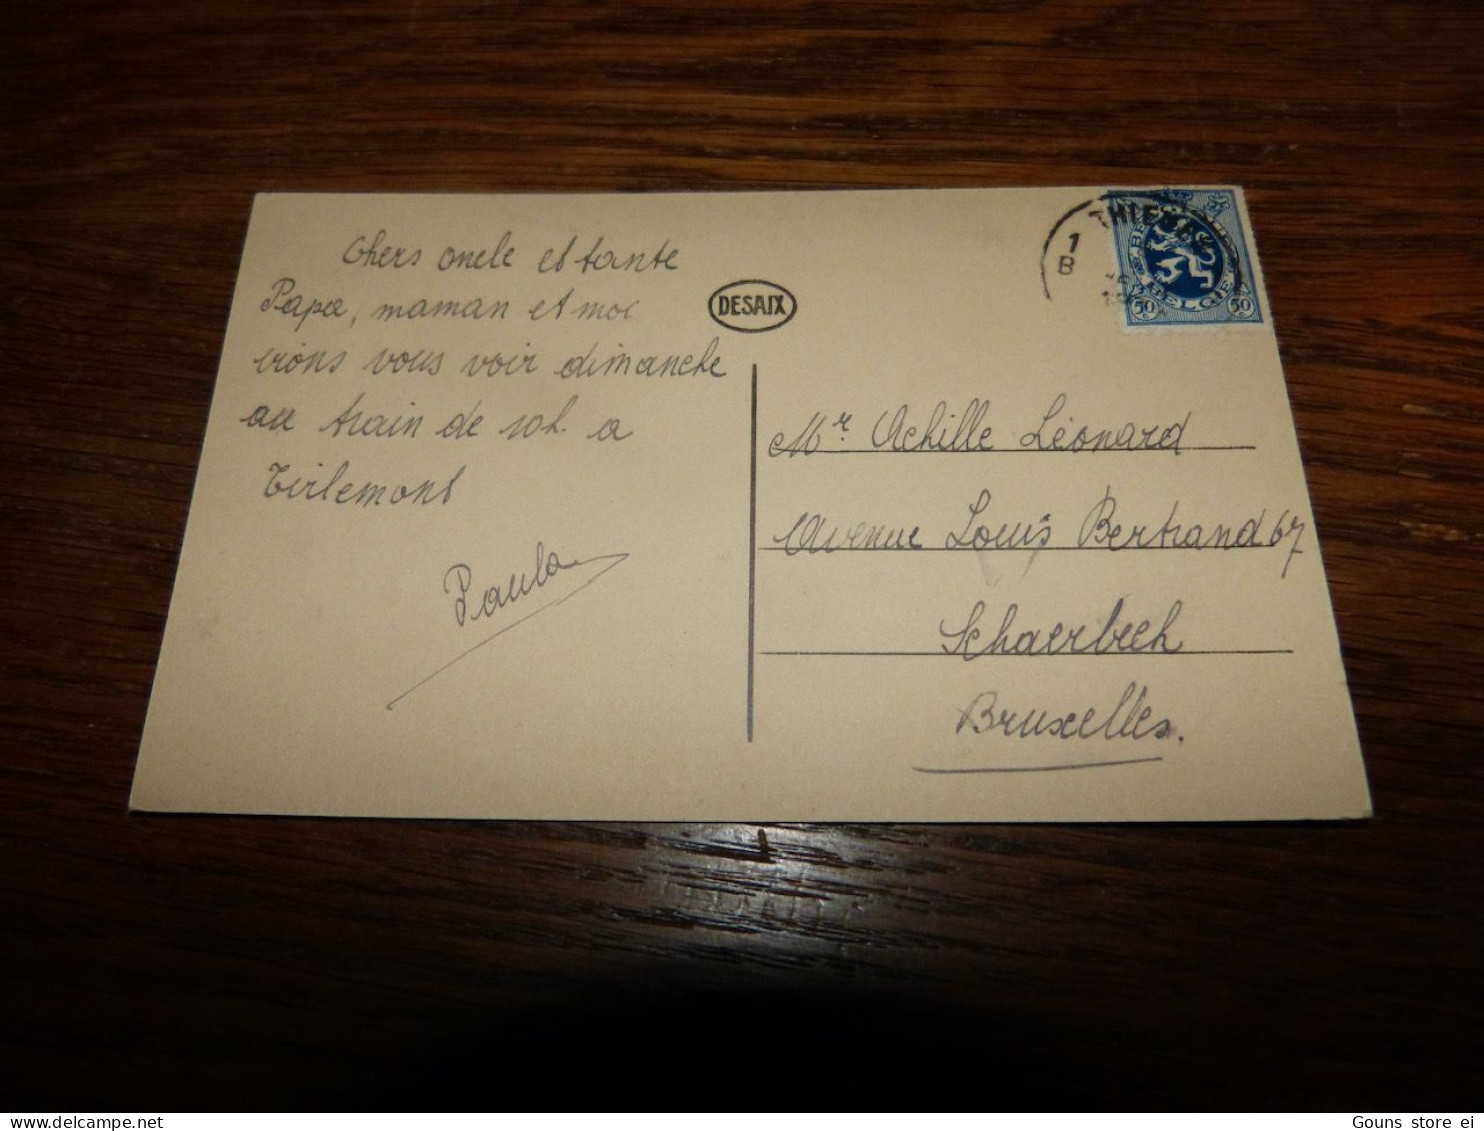 Chers oncle et tante
Papa, maman et moi
irons vous voir dimanche
au train de 10h. a
Tirlemont
Paula
DESAIX
1
B
BELGIE
50 50
Mr. Achille Léonard
Avenue Louis Bertrand 67
Schaerbeek
Bruxelles.
Gouns store ei